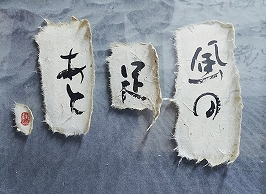 風の
足
あと